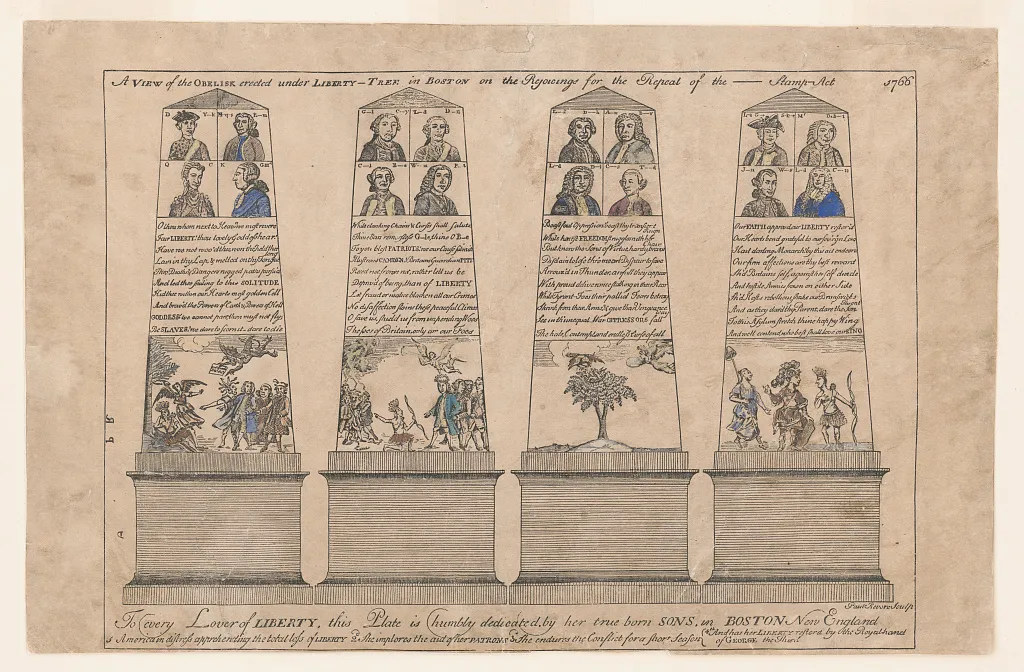 A VIEW of the OBELISK erected under LIBERTY-TREE in BOSTON on the Rejoicings for the Repeal of the — Stamp-Act 1766
O thou whom next to Heav'n we most revere
Fair LIBERTY thou lovely Goddess hear
Have we not woo'd thee, won thee, held thee long
Lain in thy Lap & melted on thy Tongue
Thro Deaths & Dangers rugged paths pursu'd
And led thee smiling to this SOLITUDE
Hid thee within our Hearts most golden Cell
And brav'd the Powers of Earth & Powers of Hell
GODDESS we cannot part, thou must not fly
Be SLAVES we dare to scorn it, dare to die
While clanking Chains & Curses shall salute
Thine Ears remorseless G—le, thine O B—e
To you blest PATRIOTS we our Cause submit
Illustrious CAMDEN, Britains Guardian PITT
Recede not, frown not, rather let us be
Depriv'd of being than of LIBERTY
Let fraud or malice blacken all our Crimes
No disaffection stains these peaceful Climes
O save us, shield us from impending Woes
The foes of Britain only are our Foes
Boast foul Oppression boast thy transient Reign
While honest FREEDOM struggles with her Chain
But know the Sons of Virtue, hardy brave
Disdain to lose thro mean Despair to save
Arrous'd in Thunder, awfull they appear
With proud deliverance stalking in their Rear
While Tyrant Foes their pallid Fears betray
Shrink from their Arms, & give their Vengeance way
See in th'unequal War OPPRESSORS fall
The hate, Contempt, and endless Curse of all
Our FAITH approv'd, our LIBERTY restor'd
Our Hearts bend grateful to our sov'reign Lord
Hail darling Monarch by this act endear'd
Our firm affections are thy best reward
Sh'd Britains self, against herself divide
And hostile Armies frown on either Side
Sh'd Hosts rebellious shake our Brunswick's Throne
And as they dar'd thy Parent, dare the Son
To this Asylum stretch thine happy Wing
And we'll contend who best shall love our KING
Paul Revere Sculp
To every Lover of LIBERTY, this Plate is humbly dedicated, by her true born SONS, in BOSTON New England
America in distress apprehending the total loss of LIBERTY 2d She implores the aid of her PATRONS 3d She endures the Conflict for a short Season 4 And has her LIBERTY restor'd by the Royal hand of GEORGE the Third